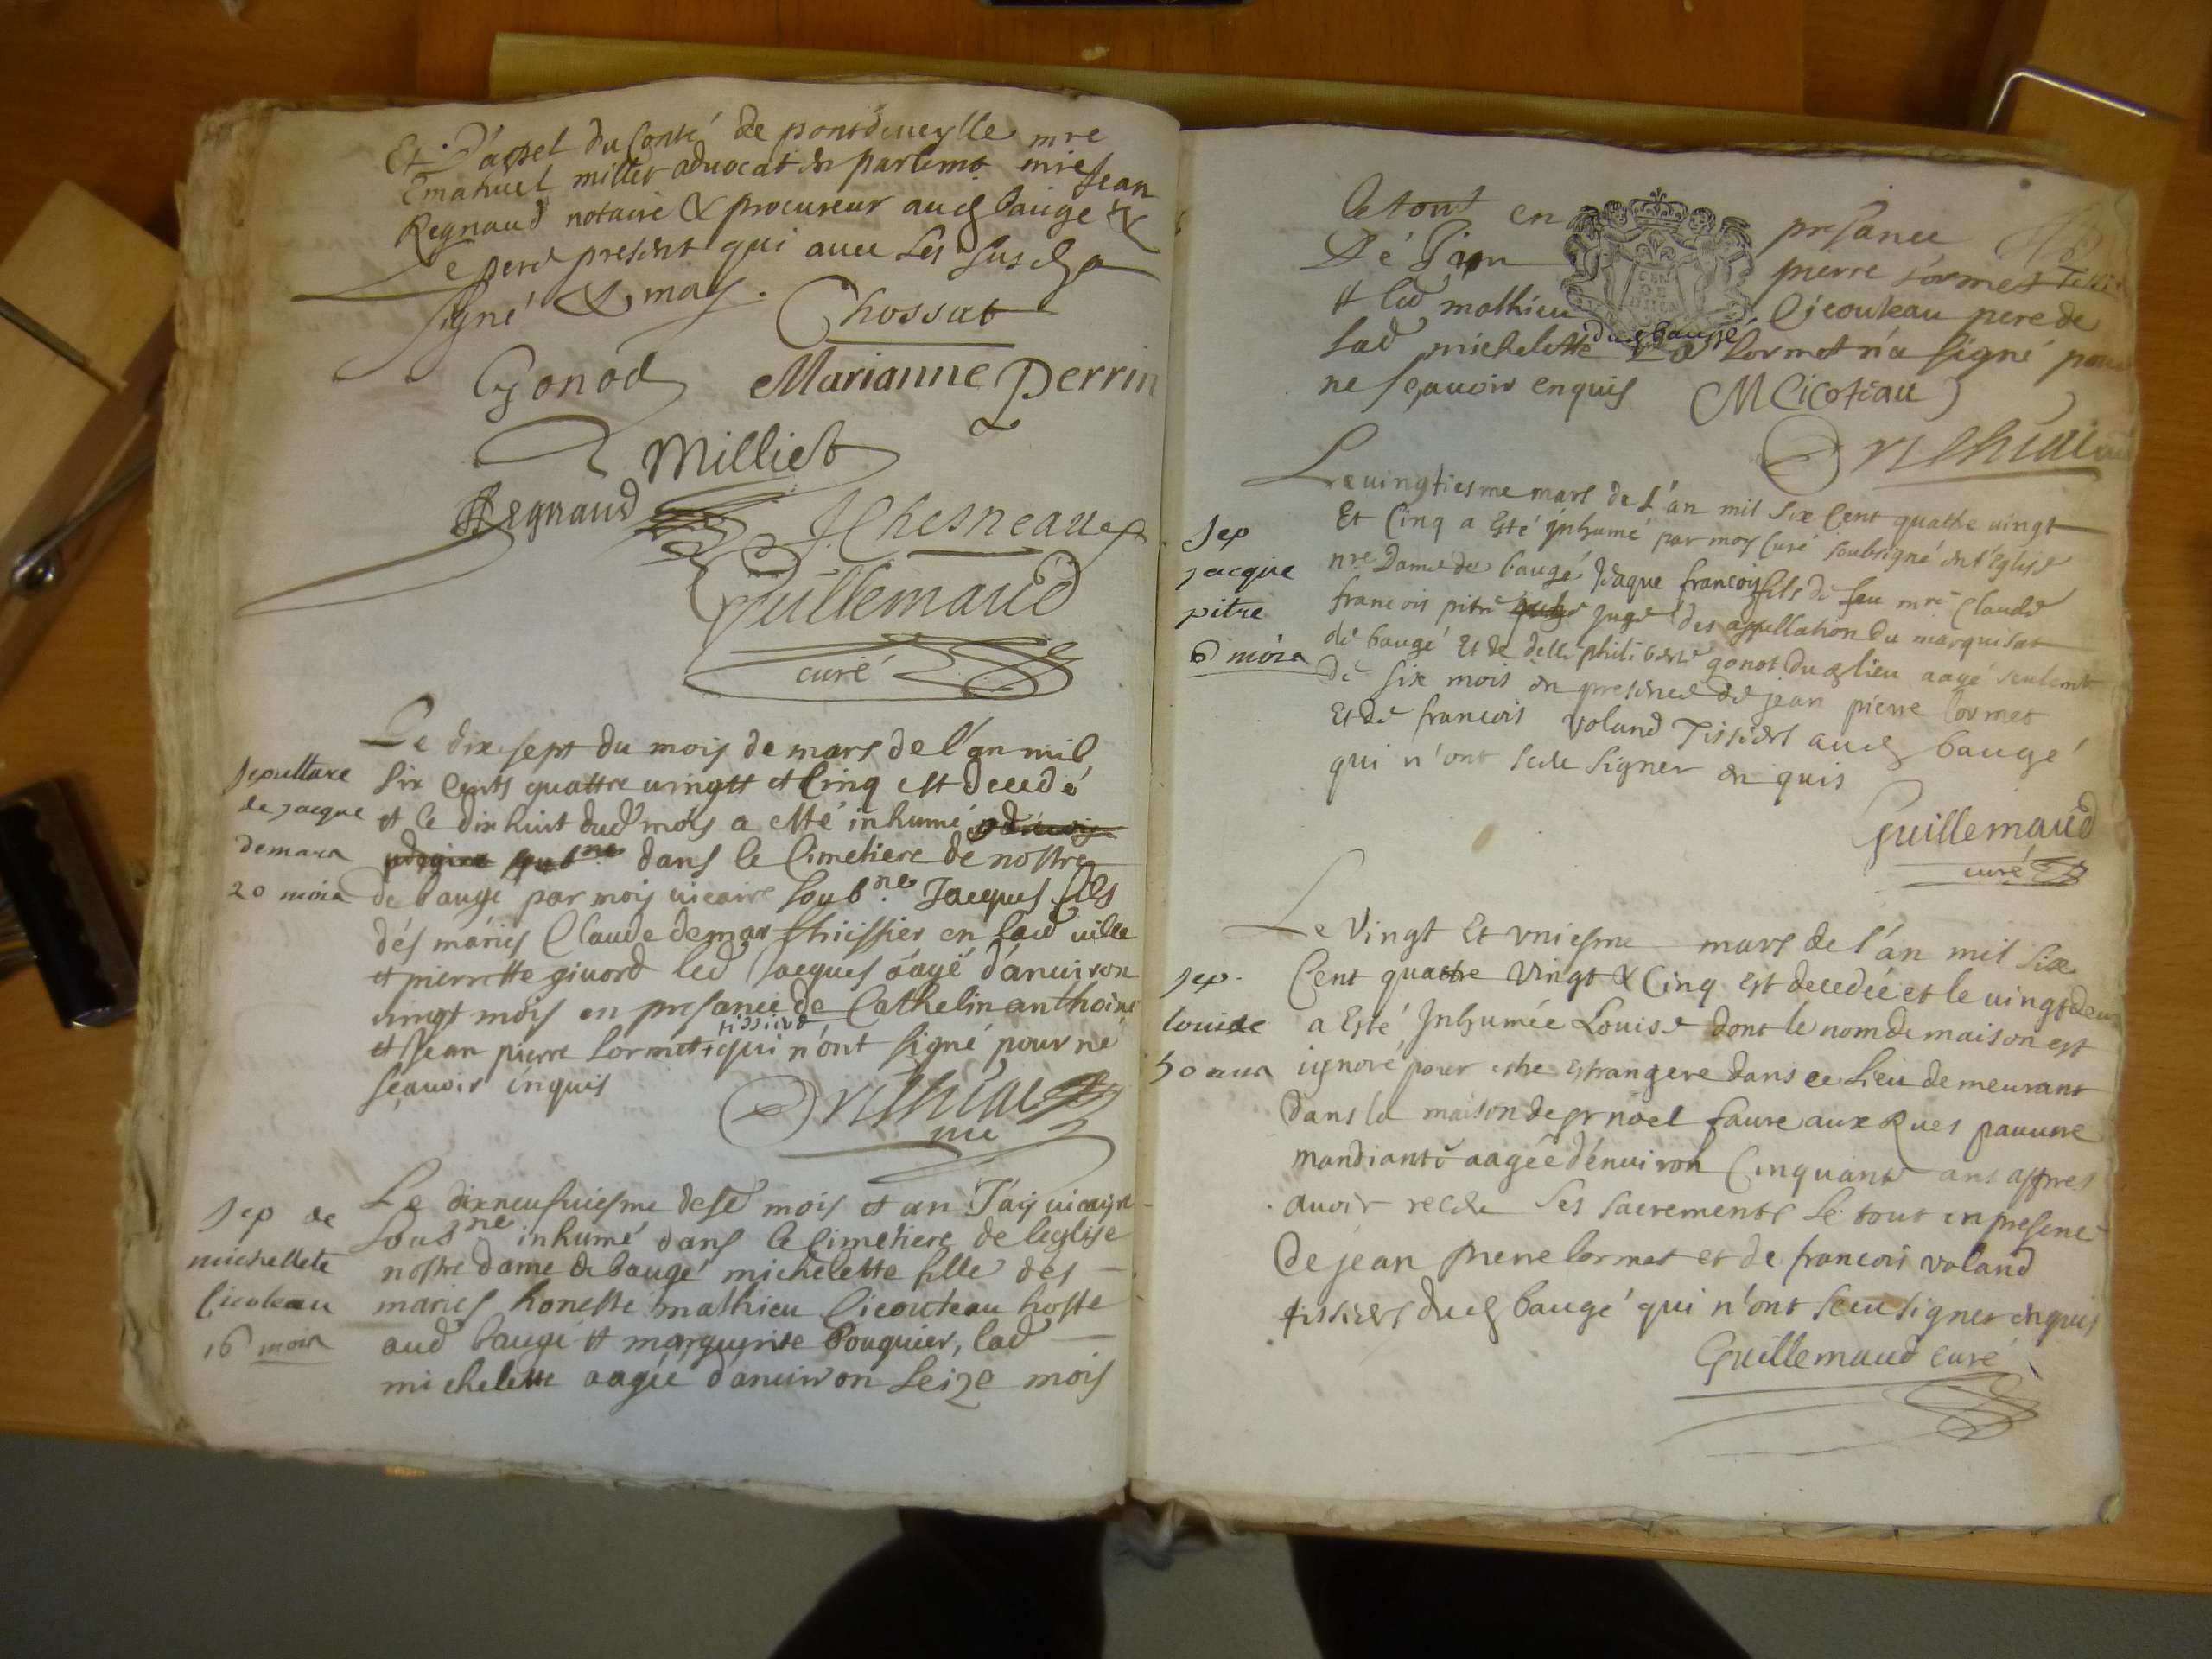 Et d'appel du Conté de pontdeueylle mre
Emanuel millet aduocat en parlemt mre Jean
Regnaud notaire & procureur aud baugé &
le pere present qui auec les susd
signé & moy. Chossat
Gonod Marianne Perrin
Milliet
Regnaud JChesneau
Guillemaud
curé
sepulture
de jacque
demara
20 mois
Le dixsept du mois de mars de l'an mil
six cents quattre uingtt et cinq est decedé
et le dix huit dud mois a esté inhumé
soubne dans le cimetiere de nostre
de baugé par moy uicaire soubne Jacques fils
des mariés Claude demar huissier en lad uille
et pierrette giuord led Jacques aagé d'anuiron
uingt mois en presance de Cathelin anthoine
tissier
et Jean pierre lormet qui n'ont signé pour ne
sçauoir enquis
Vithial
uic
sep de
michellete
licoteau
16 mois
Le dixneufuiesme desd mois et an J'ay uicaire
soubne inhumé dans le cimetiere de leglise
nostre dame de baugé michelette fille des
mariés honeste mathieu licouteau hoste
aud baugé et marguerite bouquier, lad
michelette aagée d'anuiron seize mois
le tout en presance
de Jean pierre lormet
et led mathieu licouteau pere de
dud baugé
lad michelette lormet n'a signé pour
ne sçauoir enquis M licoteau
Vithial
sep
jacque
pitre
6 mois
Le uingtiesme mars de l'an mil six cent quatre uingt
Et cinq a esté inhumé par moy curé soubsigné en l'eglise
nre Dame de baugé Jcaque françois fils de feu mre Claude
francois pitre juge des appellation du marquisat
de baugé et de delle philiberte gonot dud lieu aagé seulemt
de six mois en presence de jean pierre lormet
et de francois voland Tissiers aud baugé
qui n'ont sceu signer enquis
Guillemaud
curé
sep.
louise
50 ans
Le vingt et vniesme mars de l'an mil six
Cent quattre vingt & cinq est decedée et le uingtdeux
a esté Inhumée Louise dont le nom de maison est
ignoré pour estre estrangere dans ce lieu demeurant
dans la maison de pr noel faure aux Rues pauure
mandiante aagée d'enuiron Cinquante ans appres
auoir receu ses sacrements le tout en presence
de jean pierre lormet et de francois voland
tissiers dud baugé qui n'ont sceu signer enquis
Guillemaud curé